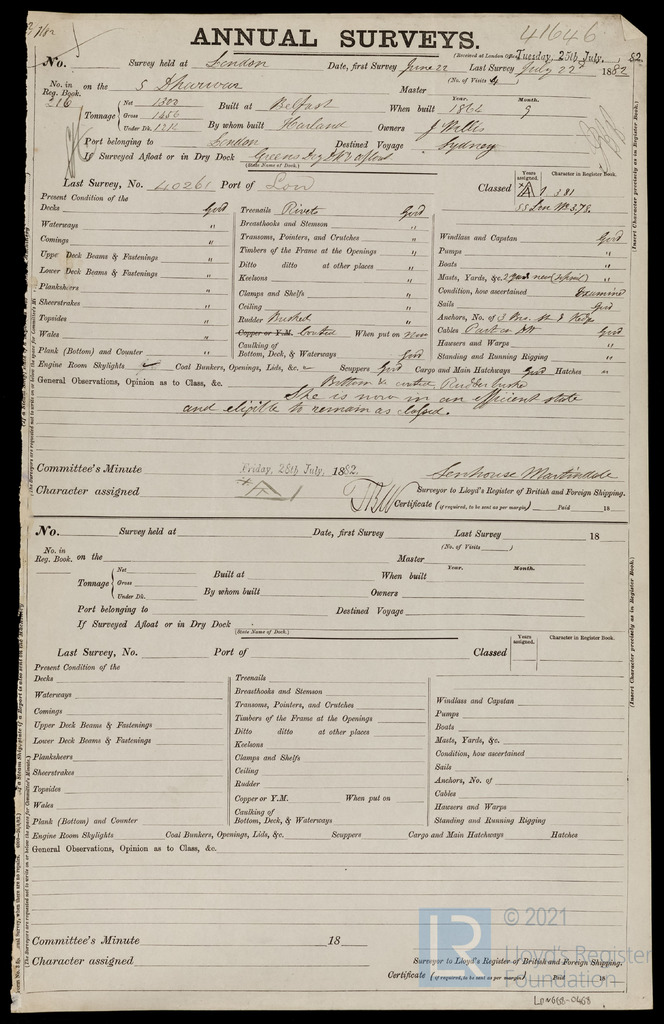 41646
ANNUAL SURVEYS.
(Received at London Office Tuesday, 25th July, 82
No. Survey held at London Date, first Survey June 22 Last Survey July 22d 1882
(No. of Visits 4)
No. in Reg. Book. 216 on the S Dharwar Master
Tonnage Net 1300 Gross 1456 Under Dk. 1312 Built at Belfast When built Year. 1864 Month. 9
By whom built Harland Owners J Willis
Port belonging to London Destined Voyage Sydney
If Surveyed Afloat or in Dry Dock Greens Dry Dk & afloat
(State Name of Dock.)
Last Survey, No. 40261 Port of Lon Classed Years assigned. Character in Register Book. A 1 3 81
SS Lon No. 3,78.
Present Condition of the
Decks Good Treenails Rivets Good
Waterways " Breasthooks and Stemson "
Comings " Transoms, Pointers, and Crutches " Windlass and Capstan Good
Upper Deck Beams & Fastenings " Timbers of the Frame at the Openings " Pumps "
Lower Deck Beams & Fastenings " Ditto ditto at other places " Boats "
Planksheers " Keelsons " Masts, Yards, &c. 2 yards new
Sheerstrakes " Clamps and Shelfs " Condition, how ascertained Examined
Topsides " Ceiling " Sails Good
Wales " Rudder Bushed " Anchors, No. of 3 Bro. St & Kedge
Plank (Bottom) and Counter " Copper or Y.M. Coated When put on now Cables Good
Caulking of Bottom, Deck, & Waterways Good Hawsers and Warps "
Standing and Running Rigging "
Engine Room Skylights Coal Bunkers, Openings, Lids, &c. Scuppers Good Cargo and Main Hatchways Good Hatches "
General Observations, Opinion as to Class, &c. Bottom coated, Rudder
She is now in an efficient state
and eligible to remain as classed.
Committee's Minute Friday, 28th July, 1882. Senhouse Martindale
Character assigned A 1 Surveyor to Lloyd's Register of British and Foreign Shipping.
Certificate (if required, to be sent as per margin) Paid 18
(Insert Character precisely as in Register Book.)
No. Survey held at Date, first Survey Last Survey 18
(No. of Visits )
No. in Reg. Book. on the Master
Tonnage Net Gross Under Dk. Built at When built Year. Month.
By whom built Owners
Port belonging to Destined Voyage
If Surveyed Afloat or in Dry Dock
(State Name of Dock.)
Last Survey, No. Port of Classed Years assigned. Character in Register Book.
Present Condition of the
Decks Treenails
Waterways Breasthooks and Stemson
Comings Transoms, Pointers, and Crutches Windlass and Capstan
Upper Deck Beams & Fastenings Timbers of the Frame at the Openings Pumps
Lower Deck Beams & Fastenings Ditto ditto at other places Boats
Planksheers Keelsons Masts, Yards, &c.
Sheerstrakes Clamps and Shelfs Condition, how ascertained
Topsides Ceiling Sails
Wales Rudder Anchors, No. of
Plank (Bottom) and Counter Copper or Y.M. When put on Cables
Caulking of Bottom, Deck, & Waterways Hawsers and Warps
Standing and Running Rigging
Engine Room Skylights Coal Bunkers, Openings, Lids, &c. Scuppers Cargo and Main Hatchways Hatches
General Observations, Opinion as to Class, &c.
Committee's Minute 18
Character assigned Surveyor to Lloyd's Register of British and Foreign Shipping.
Certificate (if required, to be sent as per margin) Paid 18
(Insert Character precisely as in Register Book.)
LR © 2021
Lloyd's Register
Foundation
LON668-0468